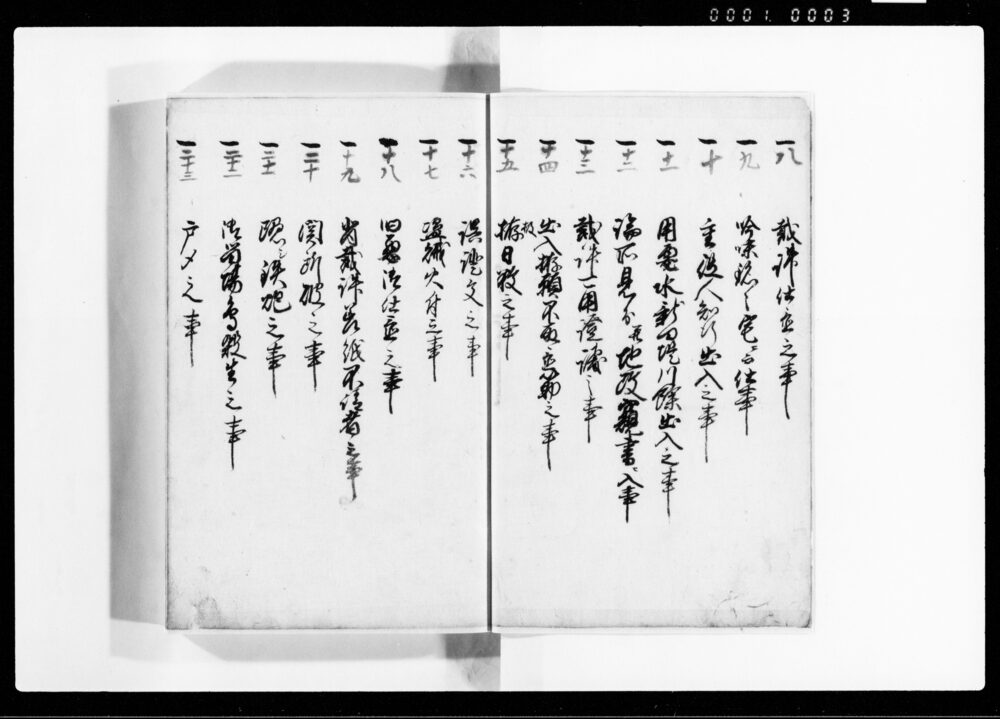 0001. 0003
一八 裁許仕直之事
一九 吟味
一十 重役人知行出入之事
一十一 用悪水新田堤川除出入之事
一十二 論所見分并地改窺書ニ入事
一十三 裁許ニ可用證議之事
一十四 出入扱願不取立筋之事
一十五 扱日数之事
一十六 誤證文之事
一十七 盗賊火付之事
一十八 旧悪御仕置之事
一十九 裁許裏紙不請者之事
一二十 関所破之事
一二十一 隠シ鉄炮之事
一二十二 御留場鳥殺生之事
一二十三 戸〆之事